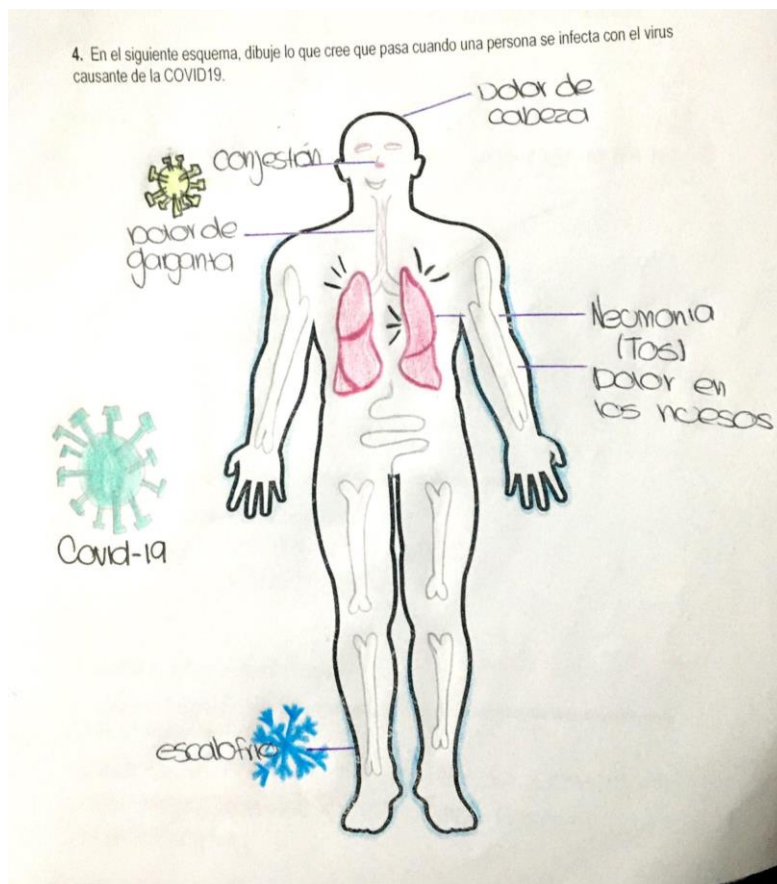 4. En el siguiente esquema, dibuje lo que cree que pasa cuando una persona se infecta con el virus
causante de la COVID19.
Dolor de
cabeza
conjestión
Dolor de
garganta
Neumonia
(Tos)
Dolor en
los huesos
Covid-19
escalofrio